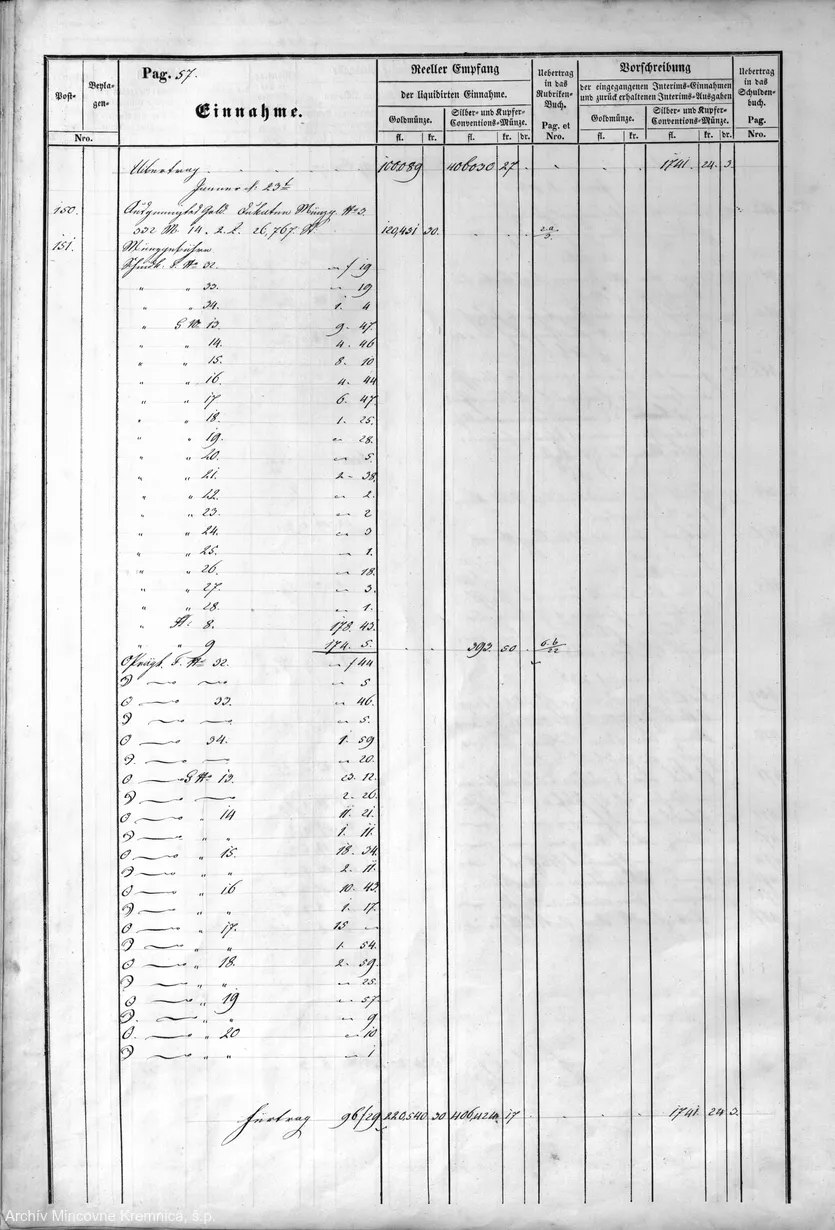 Pag. 57.
Post-
Beyla-
gen-
Nro.
Einnahme.
Reeller Empfang
der liquidirten Einnahme.
Goldmünze.
Silber- und Kupfer-
Conventions-Münze.
fl. kr. fl. kr. dr.
Uebertrag
in das
Rubriken-
Buch.
Pag. et
Nro.
Vorschreibung
der eingegangenen Interims-Einnahmen
und zurück erhaltenen Interims-Ausgaben
Goldmünze.
Silber- und Kupfer-
Conventions-Münze.
fl. kr. fl. kr. dr.
Uebertrag
in das
Schulden-
buch.
Pag.
Nro.
Uebertrag 100089 406030 27 1741 24 3
Jenner d. 23t
150. Ausgemünztes Gold. Dukaten Münzz. No 3.
332 M. 14. 2. L. 26,767. St 120,451 30. 2a/3.
151. Münzgebühren
Schmelz. S. No 32. " f 19
" " 33. " 19
" " 34. 1. 4
" G No. 13. 9. 47.
" " 14. 4. 46
" " 15. 8. 10
" " 16. 4. 44
" " 17 6. 47.
" " 18. 1. 25.
" " 19. " 28.
" " 20. " 5.
" " 21. 2 - 38.
" " 22. " 2.
" " 23. " 2
" " 24. " 3
" " 25. " 1.
" " 26. " 18.
" " 27. " 3.
" " 28. " 1.
" 8. 178. 43.
" " 9 174. 5. 393. 50. 6.b/22
S. No 32. " f 44
" 5
33. " 46.
" 5.
34. 1. 59
" 20.
G No 13. 23. 12.
2. 26.
" 14 11. 21.
" " 1. 11.
" 15. 18. 34.
" " 2. 11.
" 16 10. 43.
" " 1. 17.
" 17. 15 "
" " 1. 54.
" 18. 2. 59.
" " " 25.
" 19 " 57.
" " " 9
" 20 " 10
" " " 1
Fürtrag 96 f 29 220,540 30 406,424 17 1741 24 3.
Archív Mincovne Kremnica, š.p.